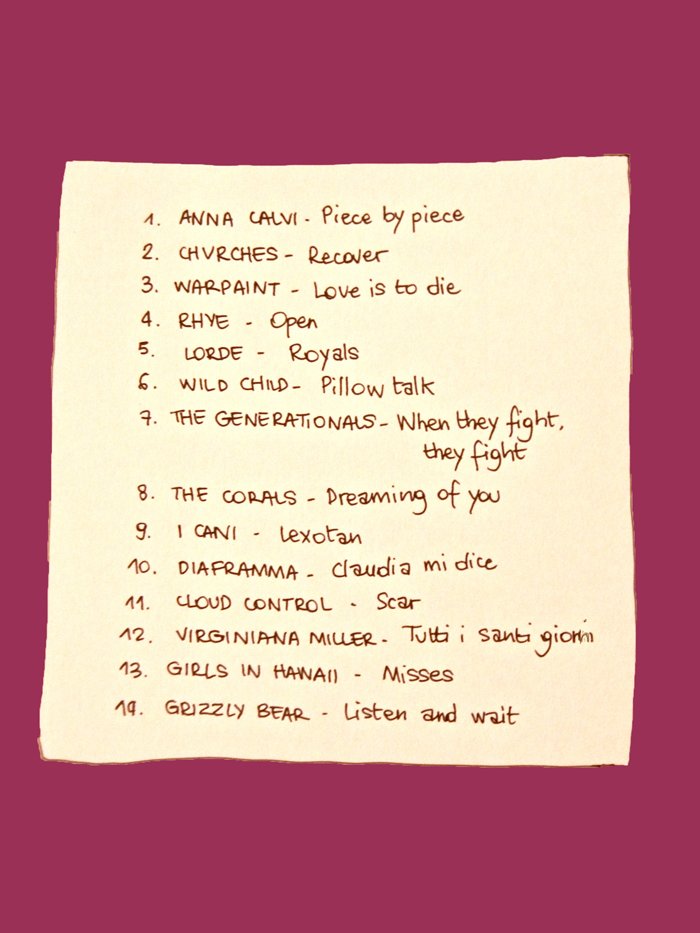 1. ANNA CALVI - Piece by piece
2. CHVRCHES - Recover
3. WARPAINT - Love is to die
4. RHYE - Open
5. LORDE - Royals
6. WILD CHILD - Pillow talk
7. THE GENERATIONALS - When they fight,
they fight
8. THE CORALS - Dreaming of you
9. I CANI - Lexotan
10. DIAFRAMMA - Claudia mi dice
11. CLOUD CONTROL - Scar
12. VIRGINIANA MILLER - Tutti i santi giorni
13. GIRLS IN HAWAII - Misses
14. GRIZZLY BEAR - Listen and wait